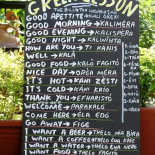 GREEK LESSON
GOOD APETITE = KALI OREXI
GOOD MORNING = KALIMÉRA
GOOD EVENING = KALISPÉRA
GOOD NIGHT = KALINIHTO
HOW ARE YOU = TI KANIS
WELL = KALÁ
GOOD FOOD = KALO FAGITÓ
NICE DAY = OREA MÉRA
IT'S HOT = KANI ZESTI
IT'S COLD = KANI KRÍO
THANK YOU = EFHARISTÓ
WELCOME = PARAKALÓ
COME HERE = ÉLA EDÓ
GO AWAY = FIGE
I WANT A BEER = THÉLO MIA BIRA
I WANT A COFFEE = THÉLO ENA KAFE
I WANT WATER = THÉLO NERÓ
I WANT FOOD = THÉLO FAGITÓ